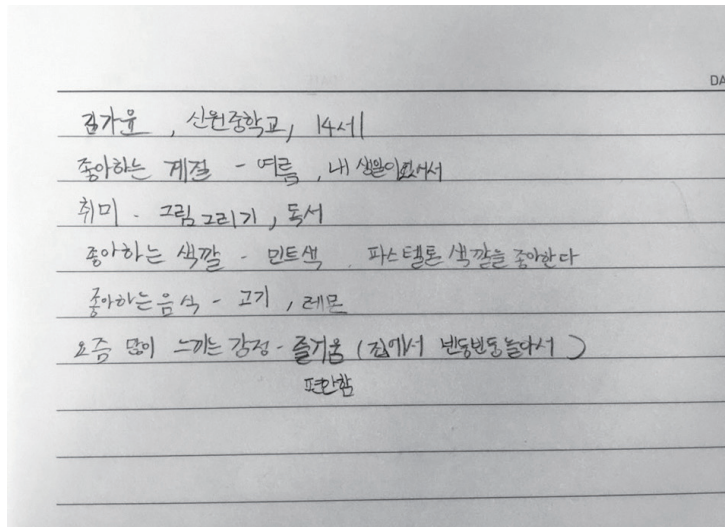 DA
김가윤, 신원중학교, 14세
좋아하는 계절 - 여름, 내 생일이 있어서
취미 - 그림그리기, 독서
좋아하는 색깔 - 민트색. 파스텔톤 색깔을 좋아한다
좋아하는 음식 - 고기, 레몬
요즘 많이 느끼는 감정 - 즐거움 (집에서 반둥반둥놀아서)
편안함